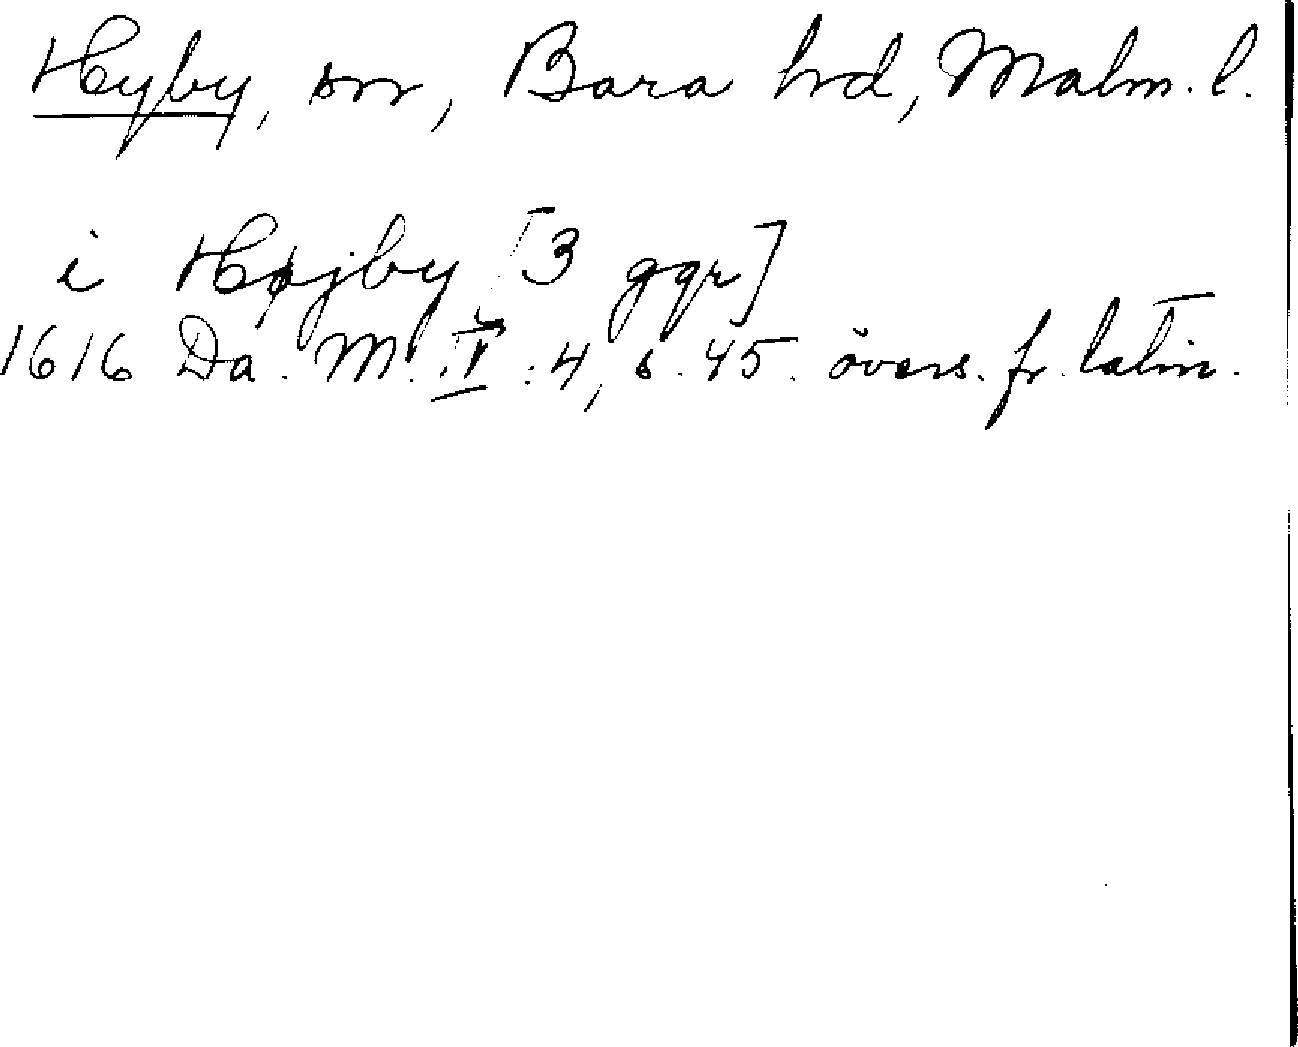 Hyby, sn, Bara hrd, Malm. l.
i Højby [3 ggr]
1616 Da. M. V : 4, s. 45. övers. fr. latin.